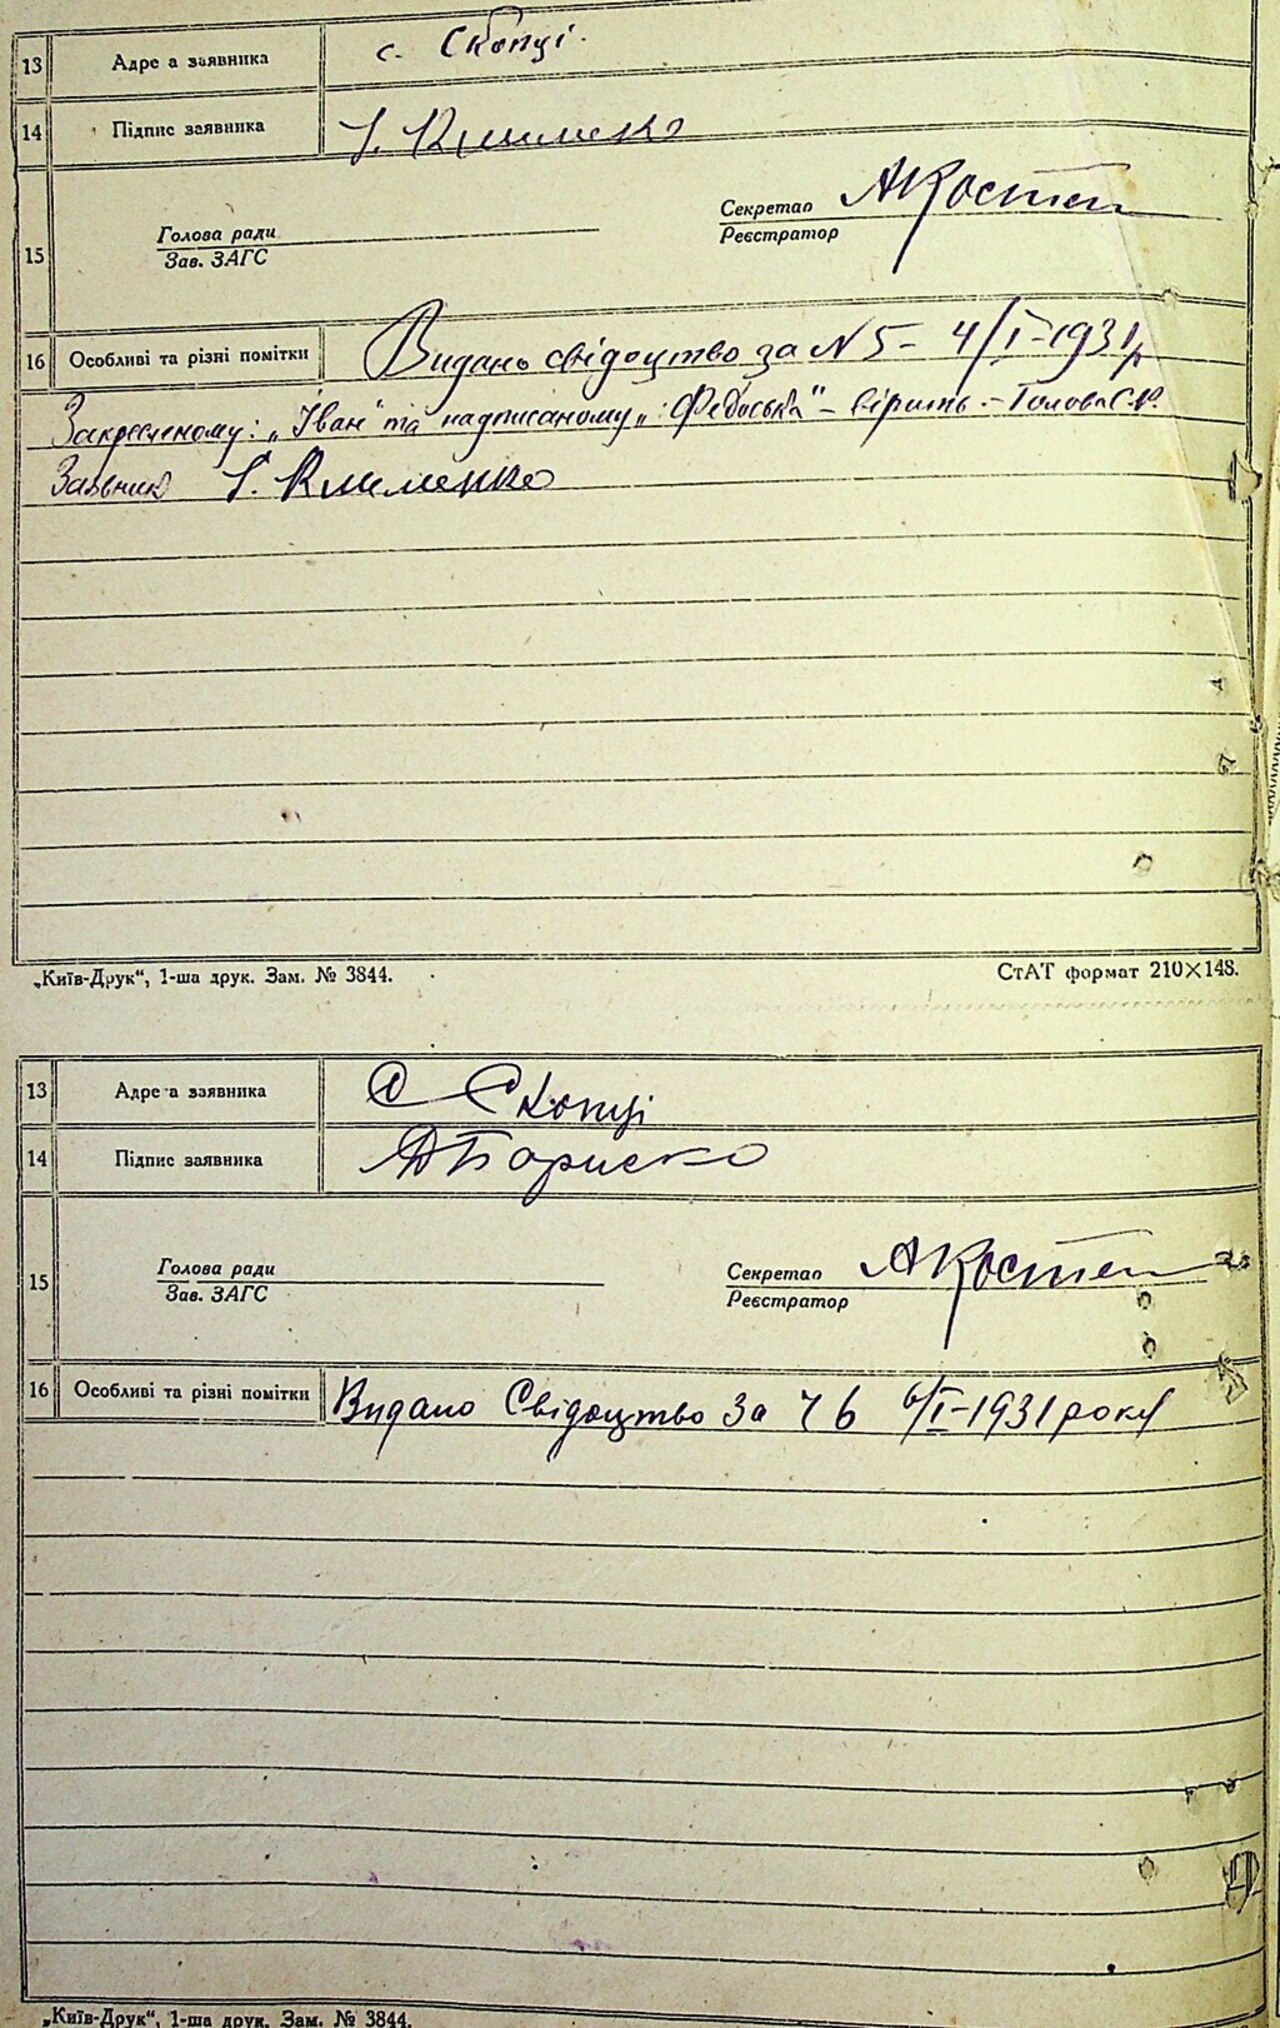 13 Адре а заявника с. Скопці.
14 Підпис заявника І. Клименко
Голова ради Секретар АКостен
15 Зав. ЗАГС Реєстратор
16 Особливі та різні помітки Видано свідоцтво за N 5 - 4/I-1931р
Закресленому: „Іван" та надписаному „Федоська" - вірить. - Голова С.Р.
Заявник І. Клименко
„Київ-Друк“, 1-ша друк. Зам. № 3844. СтАТ формат 210×148.
13 Адре а заявника С Скопці
14 Підпис заявника Бориско
Голова ради Секретар АКостен
15 Зав. ЗАГС Реєстратор
16 Особливі та різні помітки Видано Свідоцтво за Ч 6 6/I-1931 року
„Київ-Друк“, 1-ша друк. Зам. № 3844.